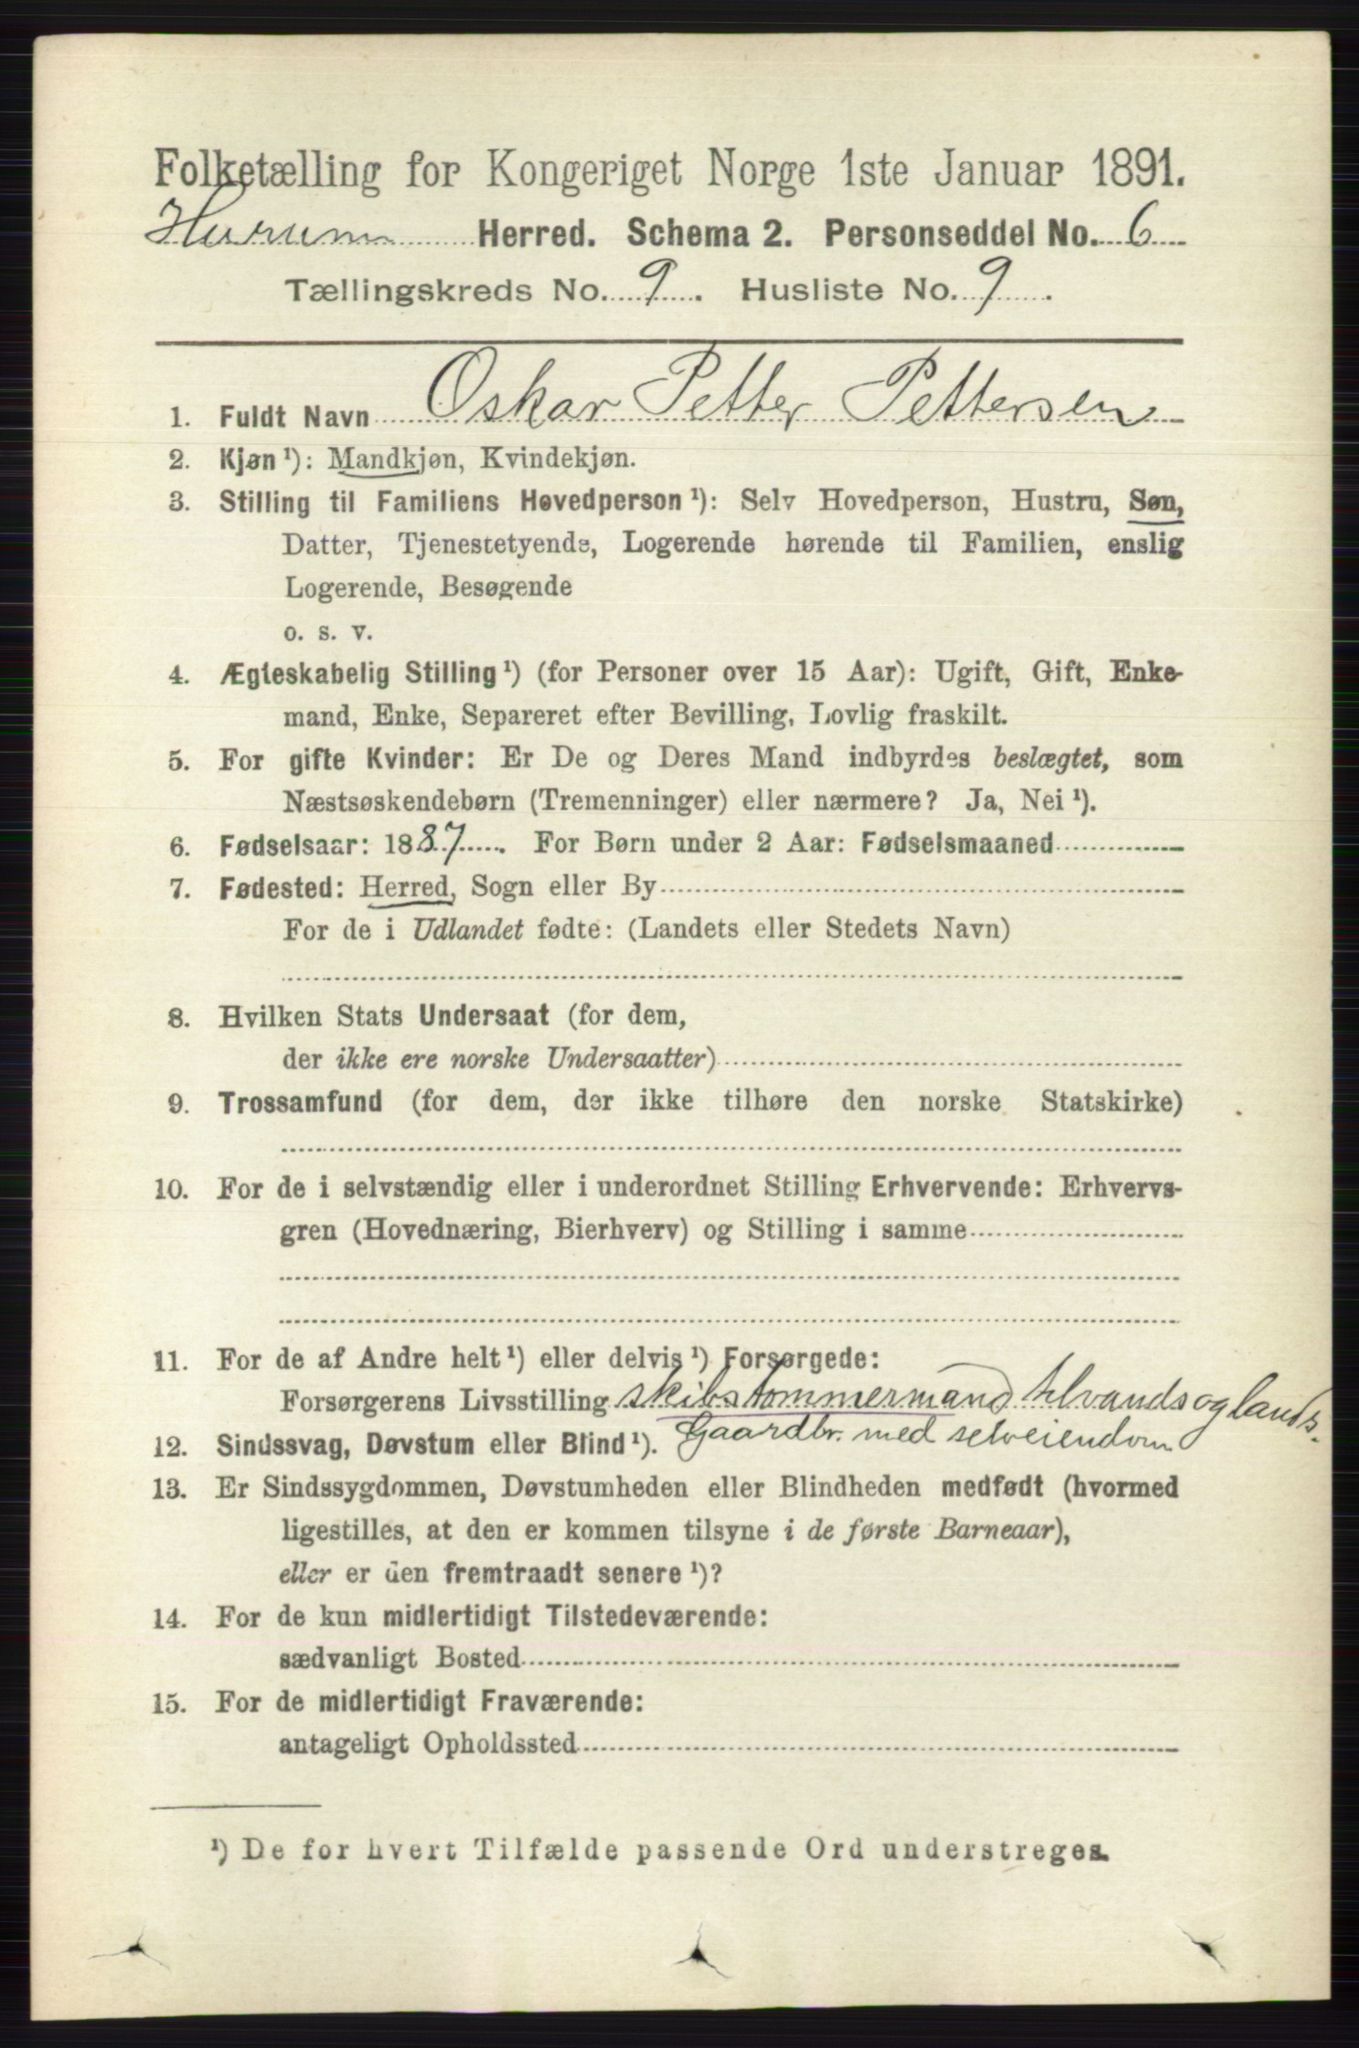 Folketælling for Kongeriget Norge 1ste Januar 1891.
Hurum Herred. Schema 2. Personseddel No. 6
Tællingskreds No. 9. Husliste No. 9.
1. Fuldt Navn Oskar Petter Pettersen
2. Kjøn¹): Mandkjøn, Kvindekjøn.
3. Stilling til Familiens Hovedperson¹): Selv Hovedperson, Hustru, Søn,
Datter, Tjenestetyende, Logerende hørende til Familien, enslig
Logerende, Besøgende
o. s. v.
4. Ægteskabelig Stilling¹) (for Personer over 15 Aar): Ugift, Gift, Enke-
mand, Enke, Separeret efter Bevilling, Lovlig fraskilt.
5. For gifte Kvinder: Er De og Deres Mand indbyrdes beslægtet, som
Næstsøskendebørn (Tremenninger) eller nærmere? Ja, Nei¹).
6. Fødselsaar: 1887. For Børn under 2 Aar: Fødselsmaaned
7. Fødested: Herred, Sogn eller By
For de i Udlandet fødte: (Landets eller Stedets Navn)
8. Hvilken Stats Undersaat (for dem,
der ikke ere norske Undersaatter)
9. Trossamfund (for dem, der ikke tilhøre den norske Statskirke)
10. For de i selvstændig eller i underordnet Stilling Erhvervende: Erhvervs-
gren (Hovednæring, Bierhverv) og Stilling i samme
11. For de af Andre helt¹) eller delvis¹) Forsørgede:
Forsørgerens Livsstilling skibstømmermand tilvands og lands.
Gaardbr. med selveiendom
12. Sindssvag, Døvstum eller Blind¹).
13. Er Sindssygdommen, Døvstumheden eller Blindheden medfødt (hvormed
ligestilles, at den er kommen tilsyne i de første Barneaar),
eller er den fremtraadt senere¹)?
14. For de kun midlertidigt Tilstedeværende:
sædvanligt Bosted
15. For de midlertidigt Fraværende:
antageligt Opholdssted
¹) De for hvert Tilfælde passende Ord understreges.